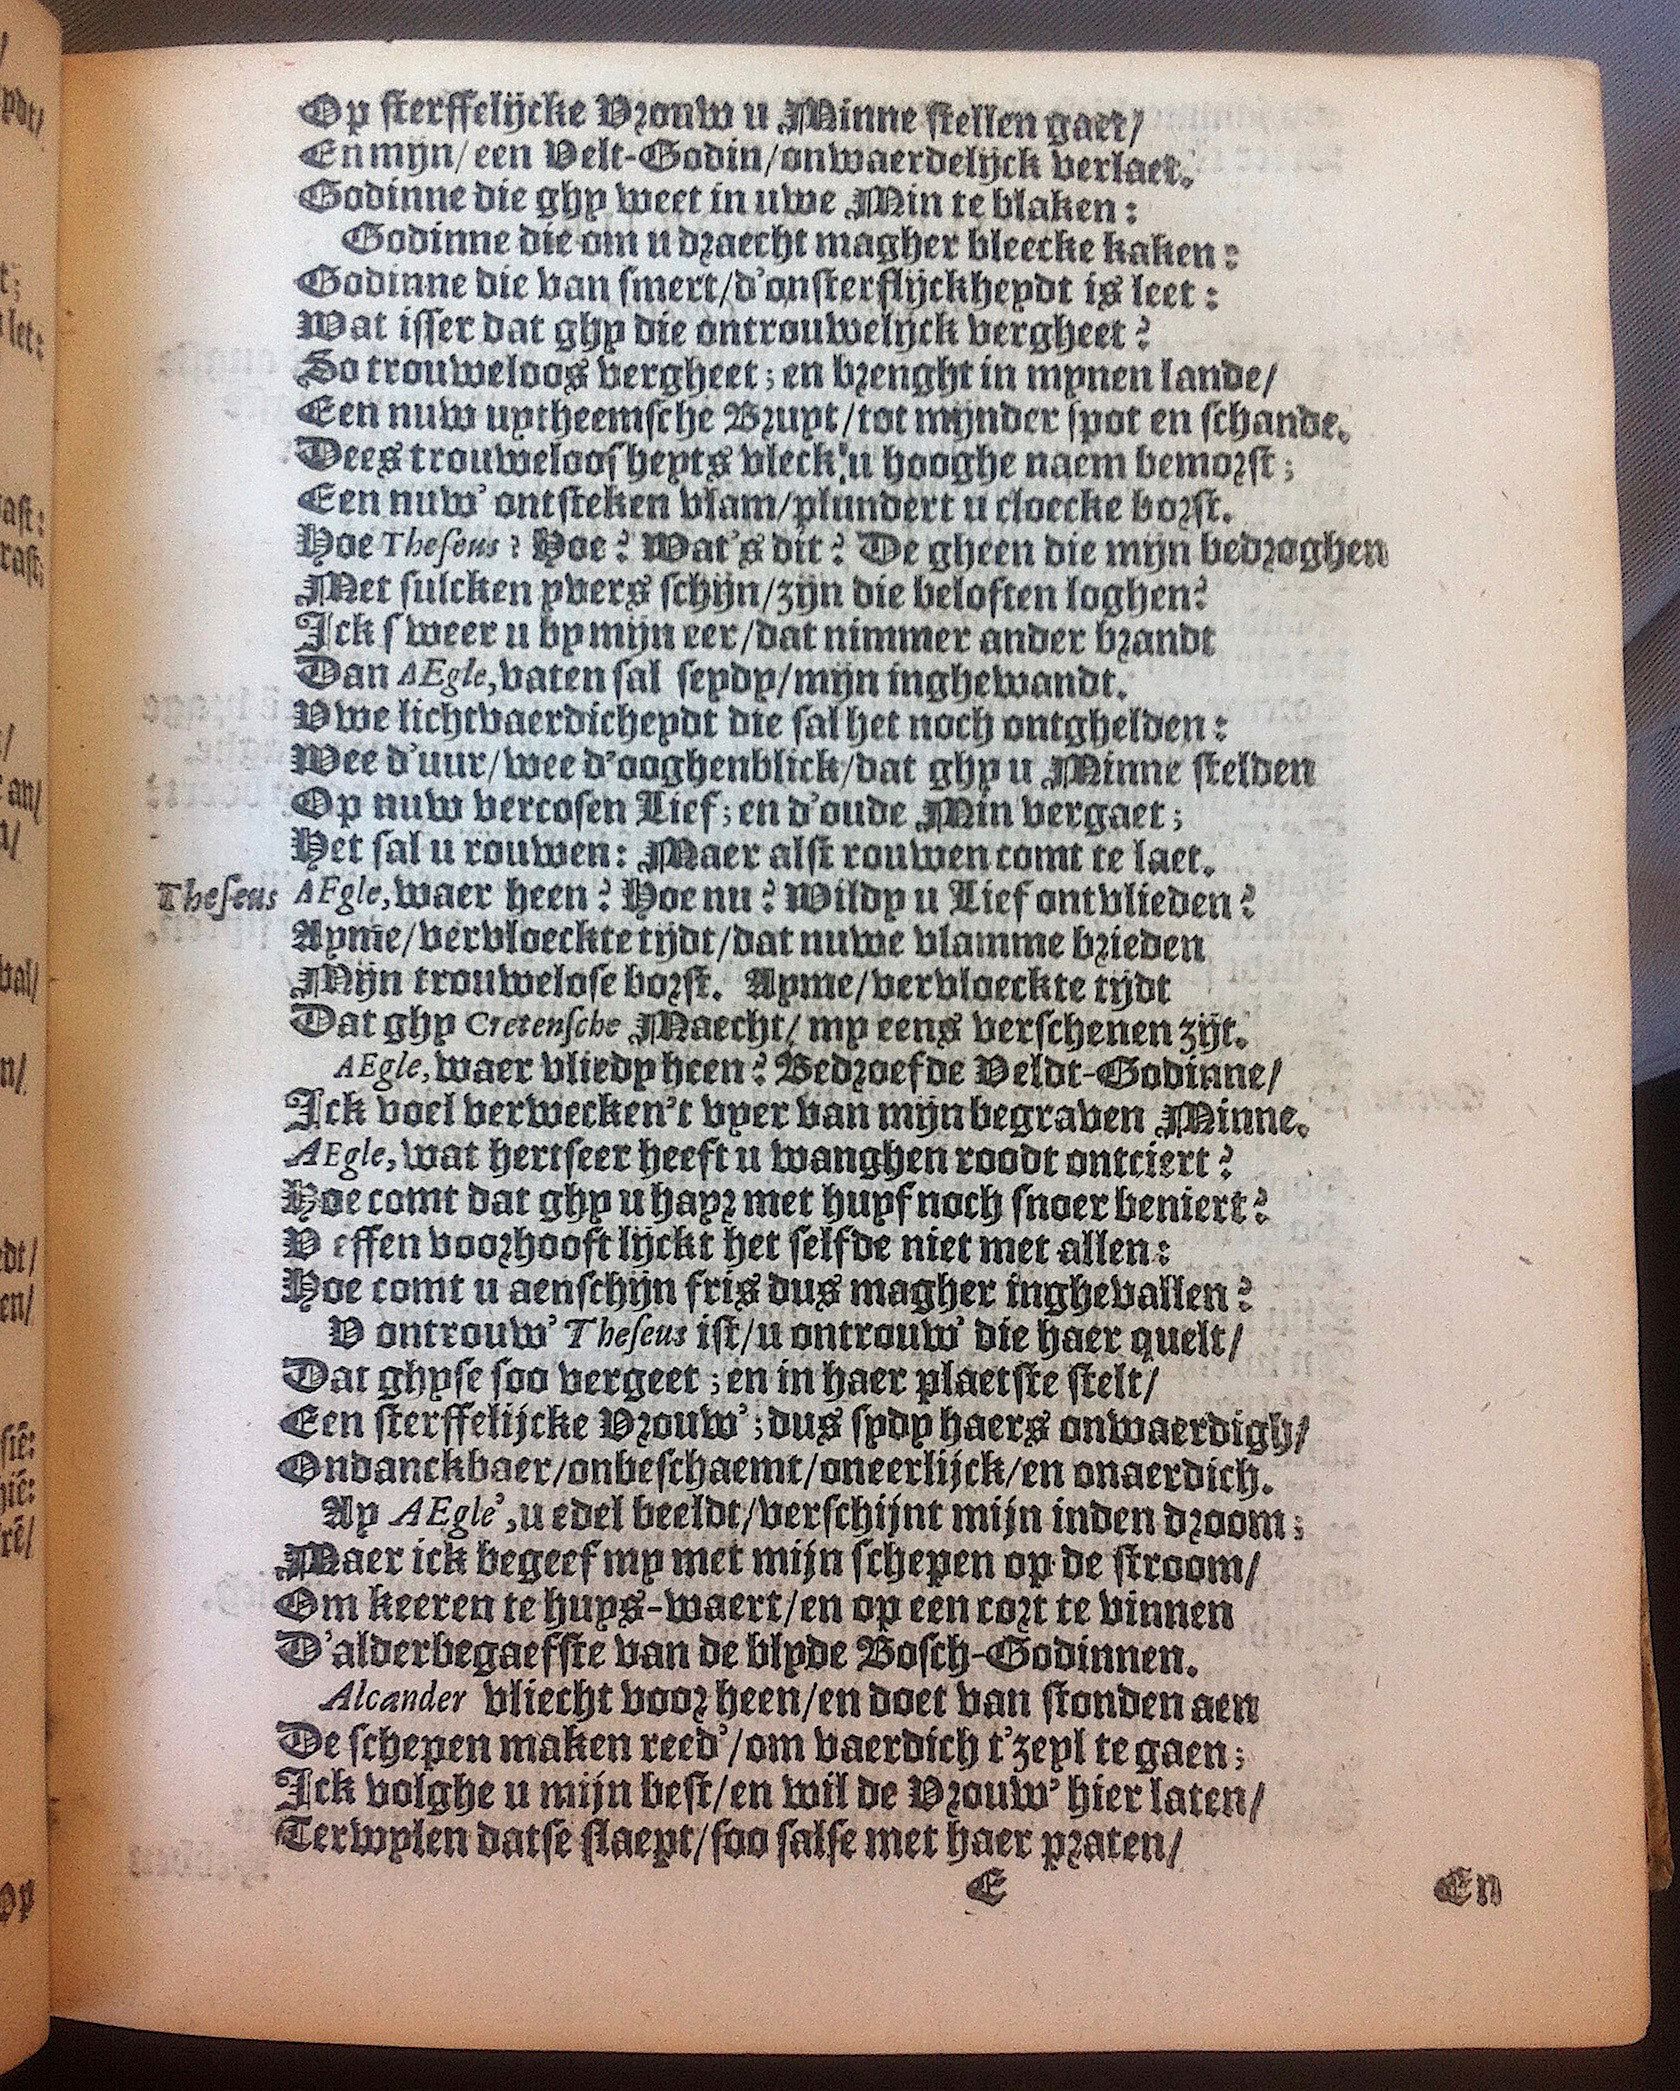 Op sterffelijcke Vrouw u Minne stellen gaet/
En mijn/ een Velt-Godin/onwaerdelijck verlaet.
Godinne die ghy weet in uwe Min te blaken:
Godinne die om u draecht magher bleecke kaken:
Godinne die van smert/d'onsterflijckheydt is leet:
Wat isser dat ghy die ontrouwelijck vergheet?
So trouweloos vergheet; en brenght in mynen lande/
Een nuw uytheemsche Bruyt/tot mijnder spot en schande.
Dees trouweloosheyts vleck'u hooghe naem bemorst;
Een nuw' ontsteken vlam/plundert u cloecke borst.
Hoe Theseus? Hoe? Wat's dit? De gheen die mijn bedroghen
Met sulcken yvers schijn/zijn die beloften loghen?
Ick sweer u by mijn eer/dat nimmer ander brandt
Dan AEgle, vaten sal seydy/mijn inghewandt.
Vwe lichtvaerdicheydt die sal het noch ontghelden:
Wee d'uur/wee d'ooghenblick/dat ghy u Minne stelden
Op nuw vercosen Lief; en d'oude Min vergaet;
Het sal u rouwen: Maer alst rouwen comt te laet.
Theseus AEgle, waer heen? Hoe nu? Wildy u Lief ontvlieden?
Ayme/vervloeckte tijdt/dat nuwe vlamme brieden
Mijn trouwelose borst. Ayme/vervloeckte tijdt
Dat ghy Cretensche Maecht/ my eens verschenen zijt.
AEgle, waer vliedy heen? Bedroefde Veldt-Godinne/
Ick voel verwecken't vyer van mijn begraven Minne.
AEgle, wat hertseer heeft u wanghen roodt ontciert?
Hoe comt dat ghy u hayr met huyf noch snoer beniert?
V effen voorhooft lijckt het selfde niet met allen:
Hoe comt u aenschijn fris dus magher inghevallen?
V ontrouw' Theseus ist/u ontrouw' die haer quelt/
Dat ghyse soo vergeet; en in haer plaetste stelt/
Een sterffelijcke Vrouw'; dus sydy haers onwaerdigh/
Ondanckbaer/onbeschaemt/oneerlijck/en onaerdich.
Ay AEgle', u edel beeldt/verschijnt mijn inden droom;
Maer ick begeef my met mijn schepen op de stroom/
Om keeren te huys-waert/en op een cort te vinnen
D'alderbegaefste van de blyde Bosch-Godinnen.
Alcander vliecht voor heen/en doet van stonden aen
De schepen maken reed'/om vaerdich t'zeyl te gaen;
Ick volghe u mijn best/en wil de Vrouw' hier laten/
Terwylen datse slaept/soo salse met haer praten/
E En